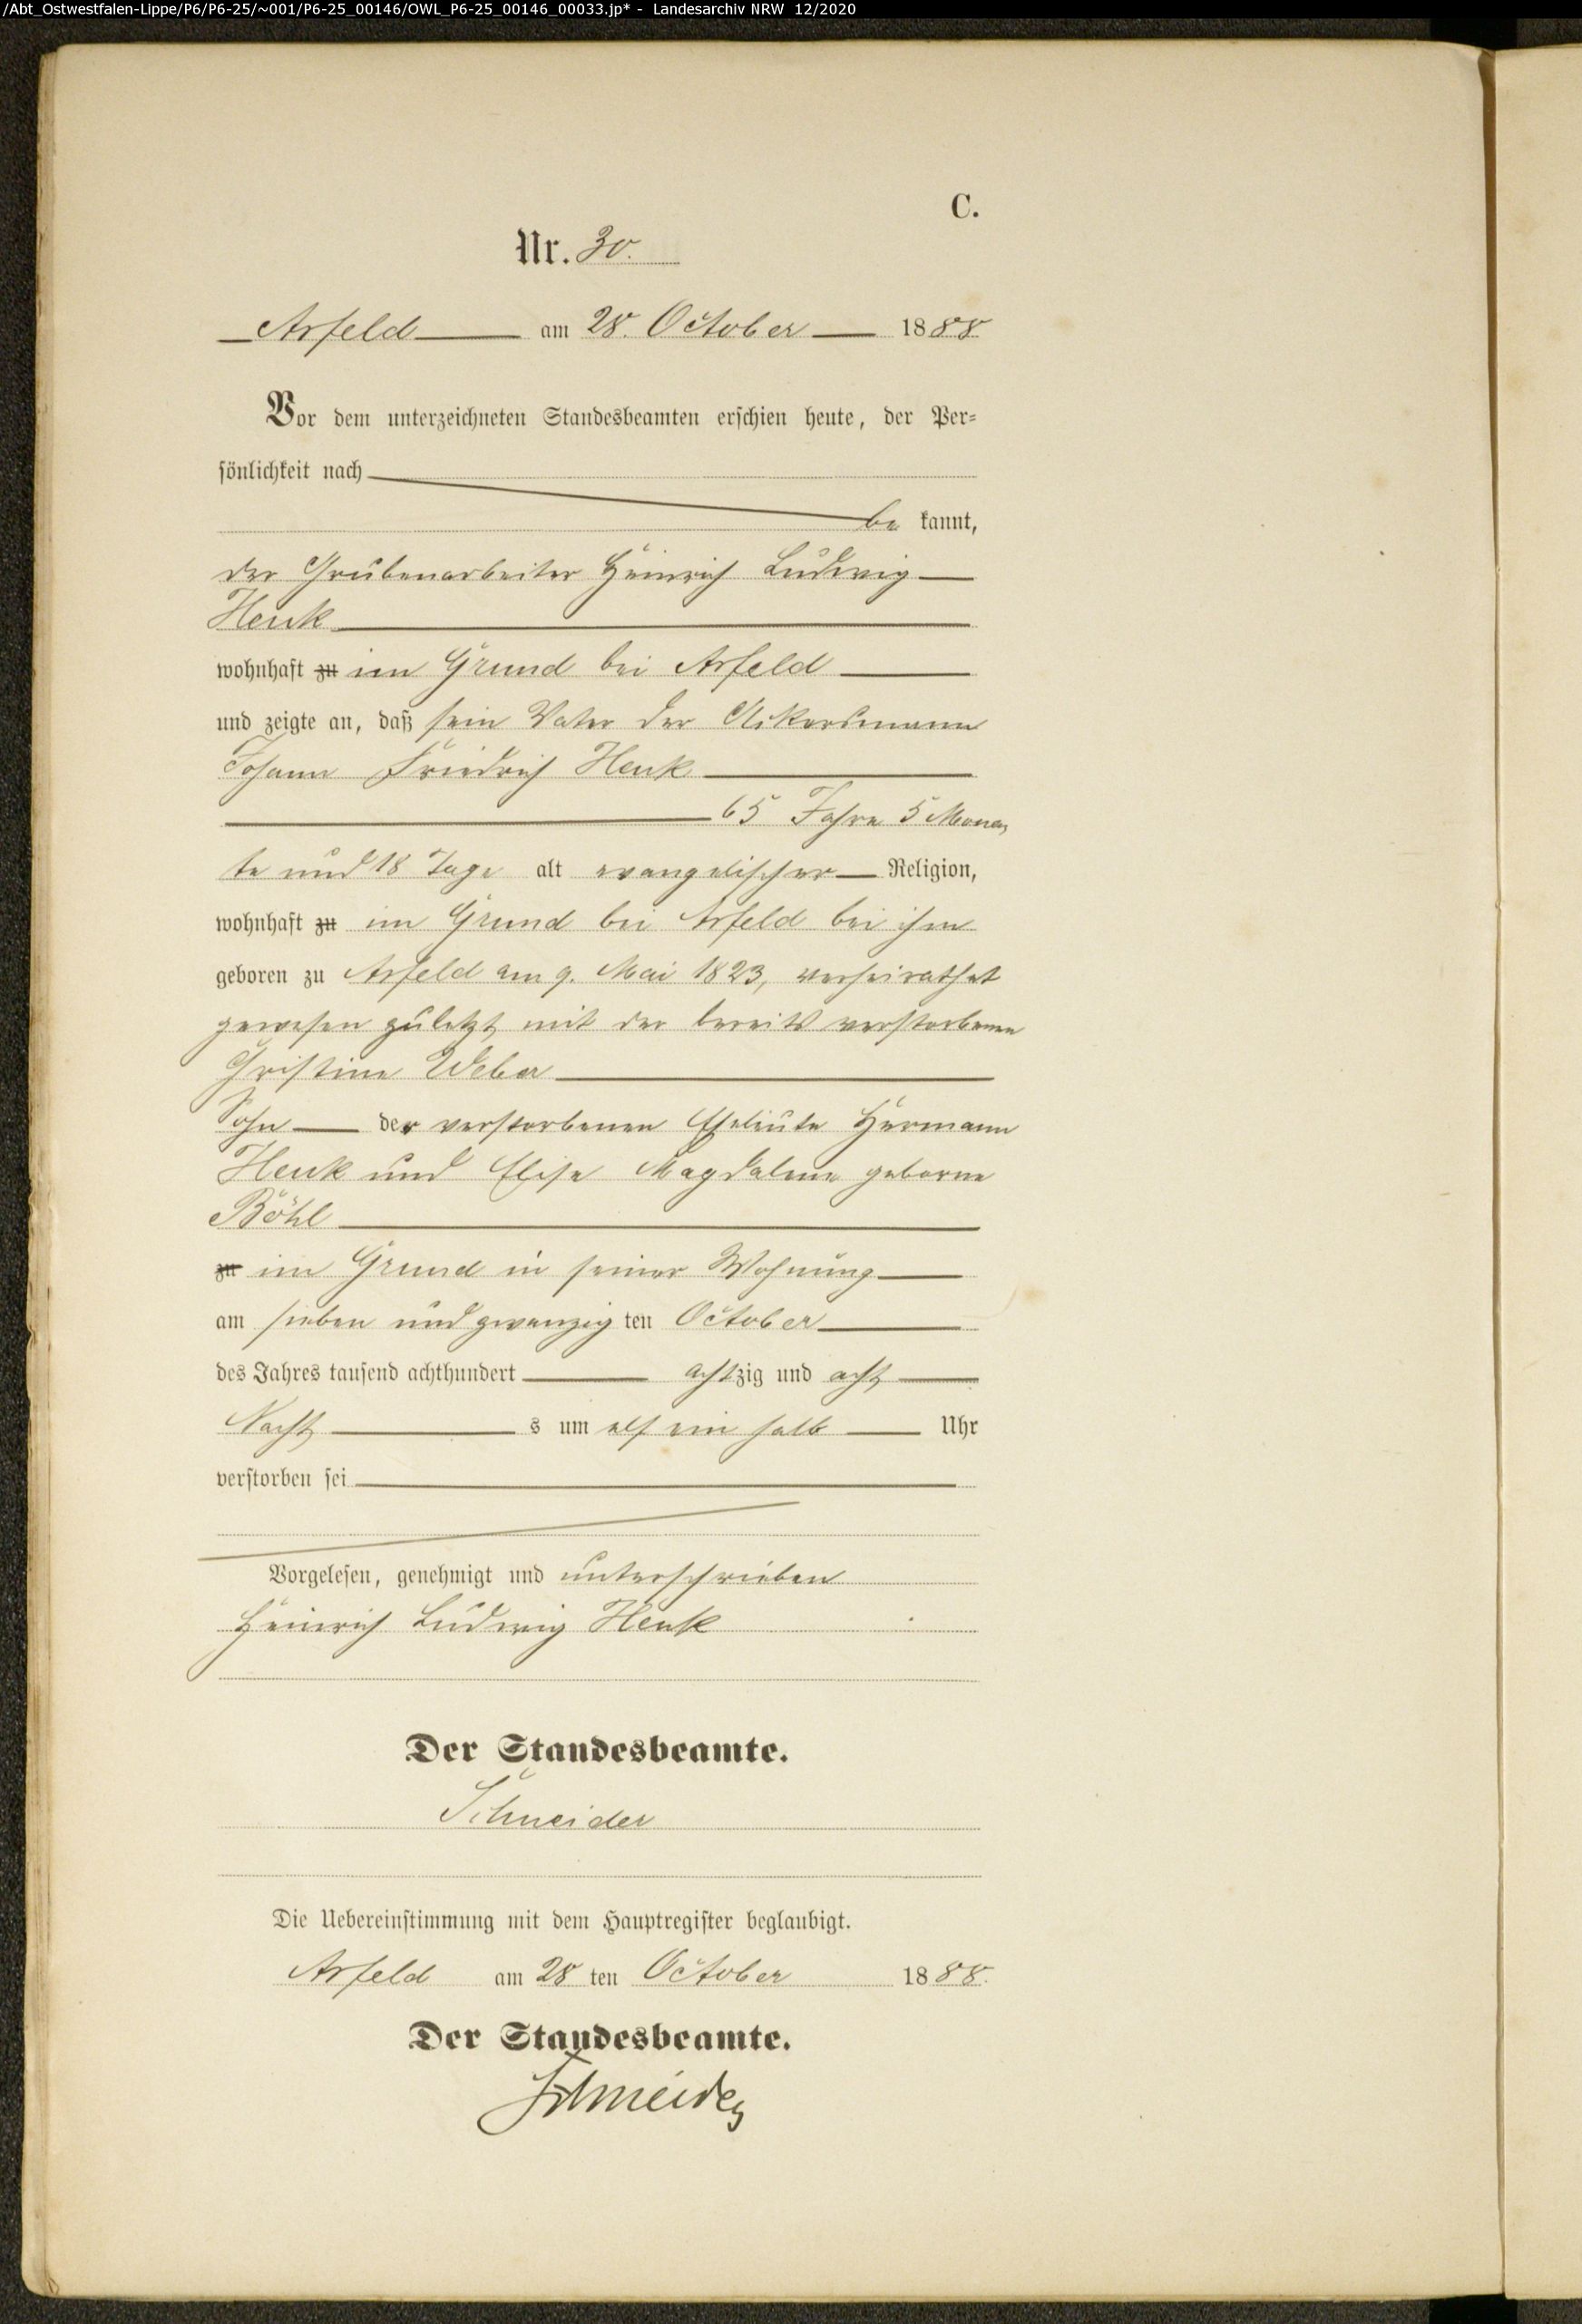 /Abt_Ostwestfalen-Lippe/P6/P6-25/~001/P6-25_00146/OWL_P6-25_00146_00033.jp* - Landesarchiv NRW 12/2020
C.
Nr. 30.
Arfeld am 28. October 1888
Vor dem unterzeichneten Standesbeamten erschien heute, der Per=
sönlichkeit nach
be kannt,
der Grubenarbeiter Heinrich Ludwig
Henk
wohnhaft zu im Grund bei Arfeld
und zeigte an, daß sein Vater der Ackersmann
Johann Friedrich Henk
65 Jahre 5 Mona
te und 18 Tage alt evangelischer Religion,
wohnhaft zu im Grund bei Arfeld bei ihm
geboren zu Arfeld am 9. Mai 1823, verheirathet
gewesen zuletzt mit der bereits verstorbenen
Christine Weber
Sohn der verstorbenen Eheleute Hermann
Henk und Elise Magdalene geborne
Böhl
zu im Grund in seiner Wohnung
am sieben und zwanzig ten October
des Jahres tausend achthundert achtzig und acht
Nacht s um elf ein halb Uhr
verstorben sei
Vorgelesen, genehmigt und unterschrieben
Heinrich Ludwig Henk
Der Standesbeamte.
Schneider
Die Uebereinstimmung mit dem Hauptregister beglaubigt.
Arfeld am 28 ten October 1888.
Der Standesbeamte.
Schneider